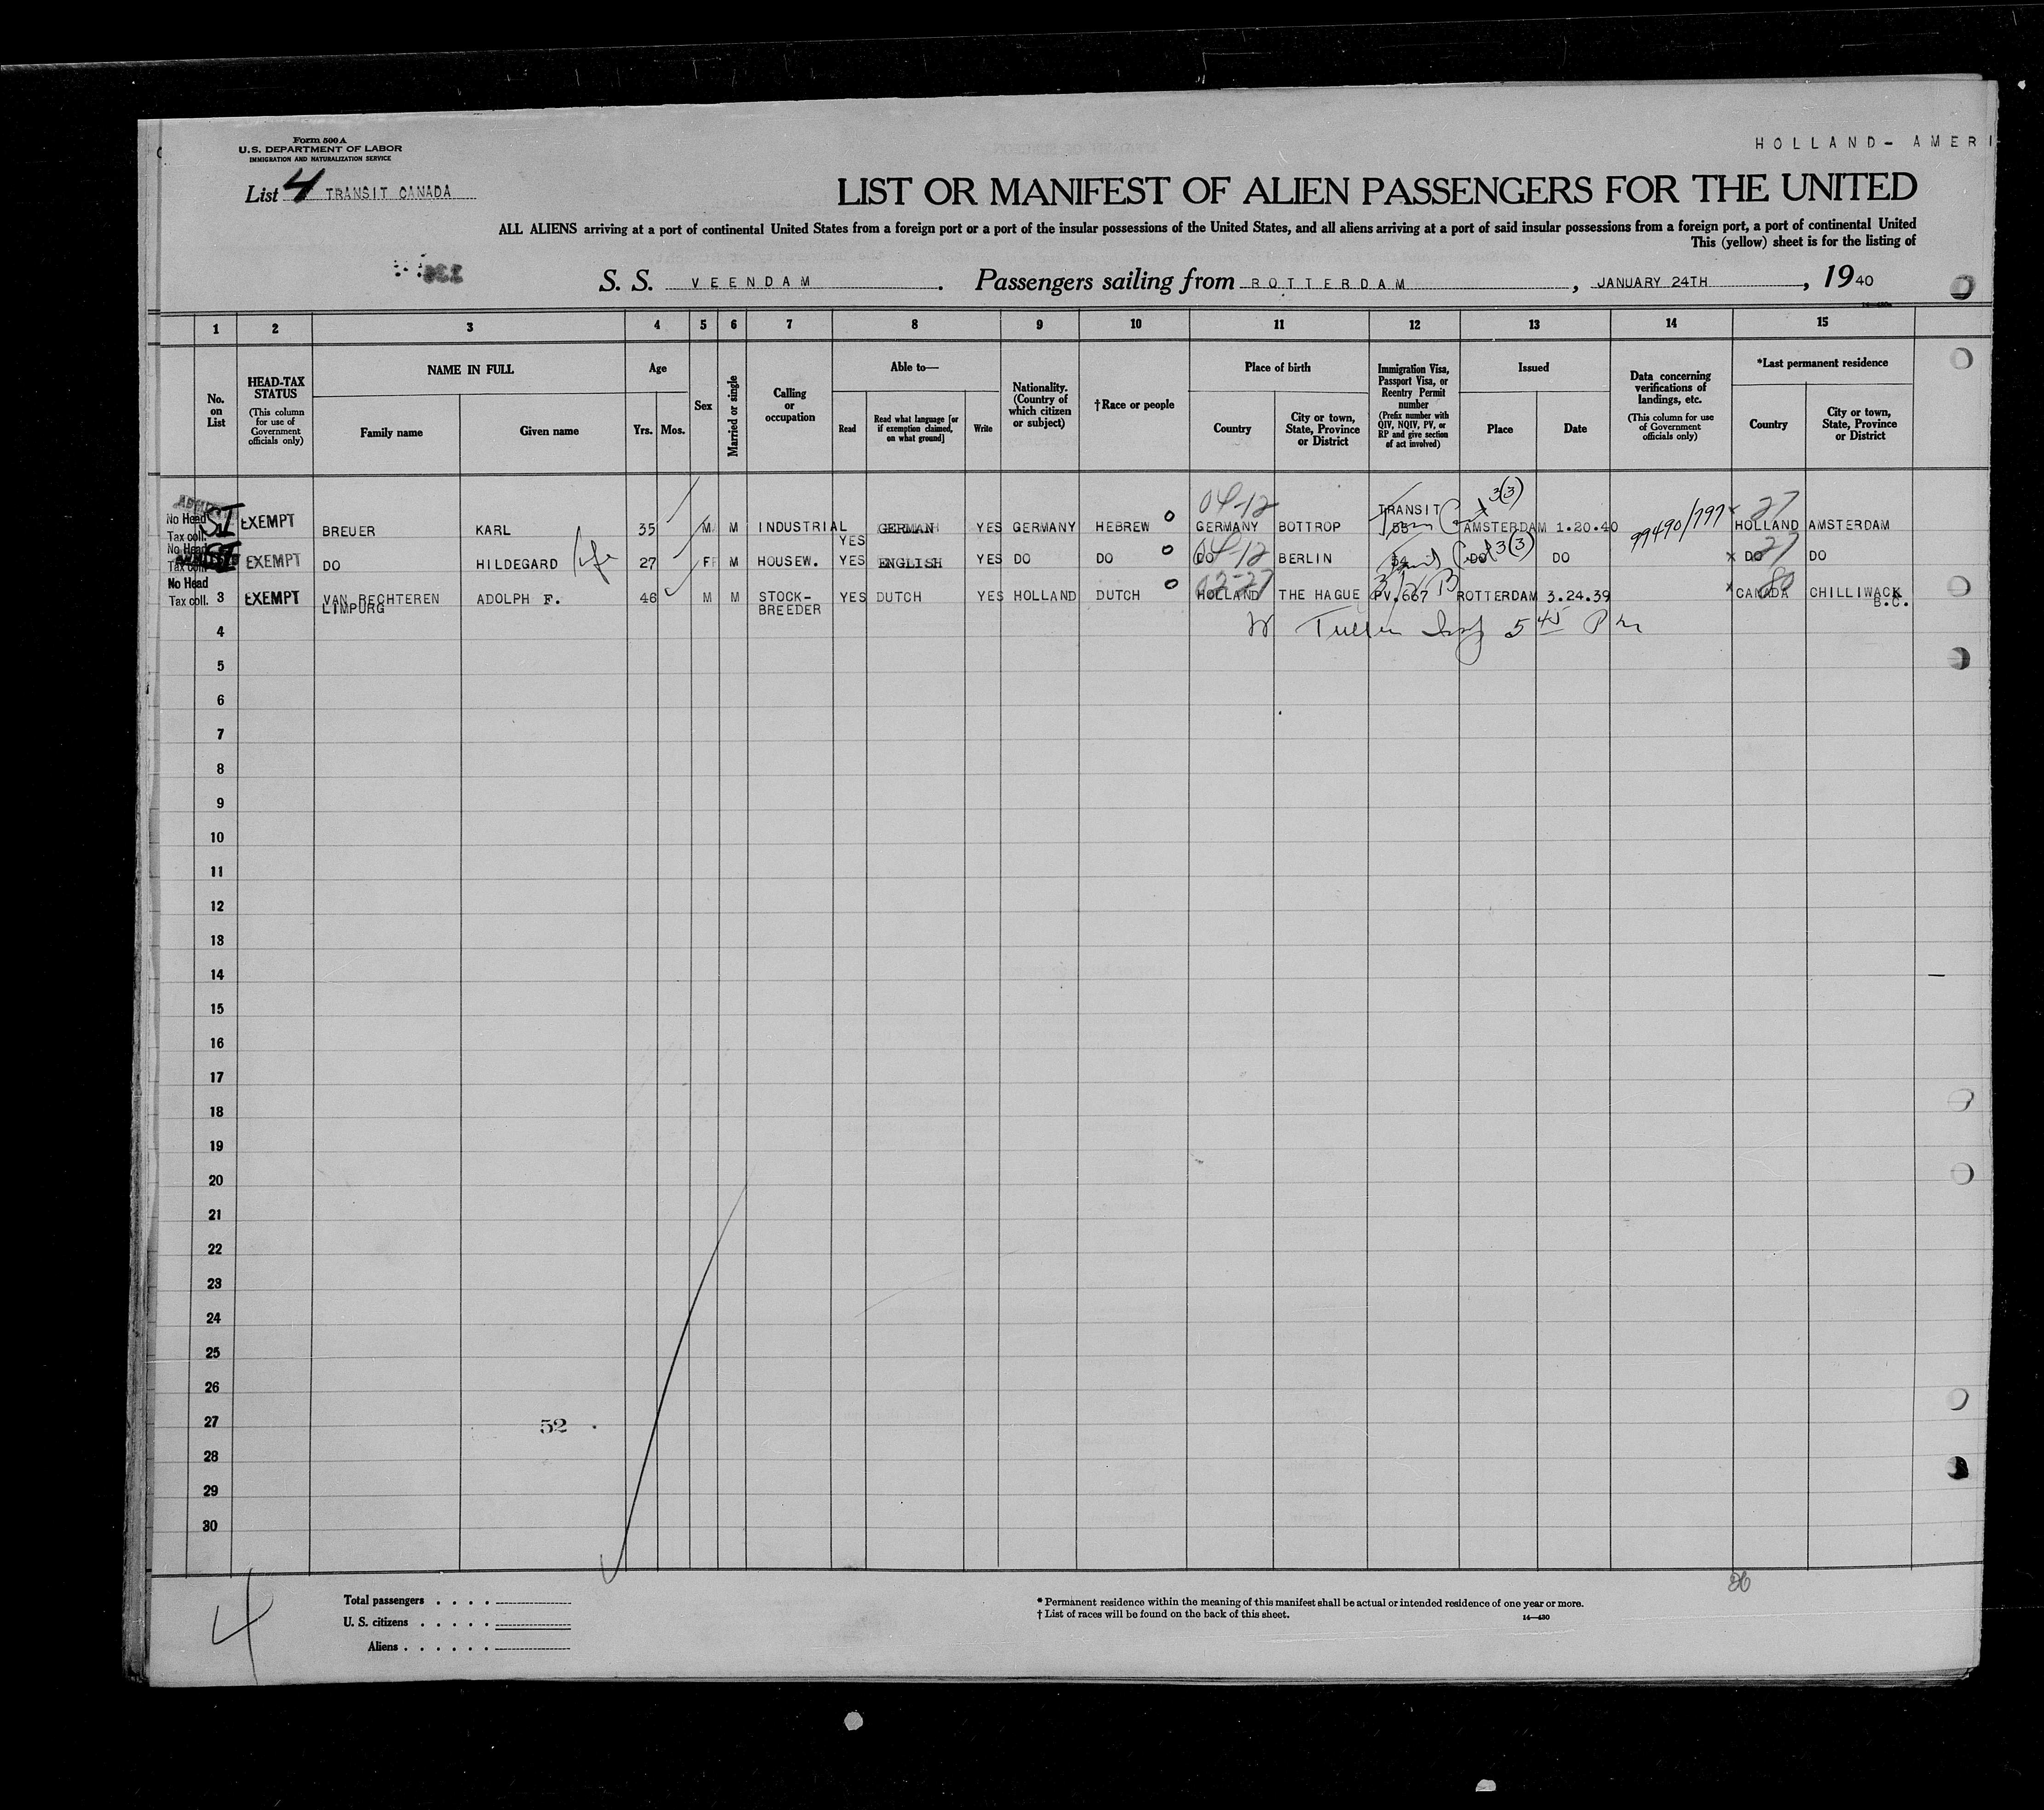 Form 500 A
U.S. DEPARTMENT OF LABOR
IMMIGRATION AND NATURALIZATION SERVICE
HOLLAND- AMERI
List 4 TRANSIT CANADA
LIST OR MANIFEST OF ALIEN PASSENGERS FOR THE UNITED
ALL ALIENS arriving at a port of continental United States from a foreign port or a port of the insular possessions of the United States, and all aliens arriving at a port of said insular possessions from a foreign port, a port of continental United
This (yellow) sheet is for the listing of
S. S. VEENDAM. Passengers sailing from ROTTERDAM, JANUARY 24TH, 1940
1 2 3 4 5 6 7 8 9 10 11 12 13 14 15
No. on List
HEAD-TAX STATUS
(This column for use of Government officials only)
NAME IN FULL
Family name
Given name
Age
Yrs. Mos.
Sex
Married or single
Calling or occupation
Able to—
Read
Read what language [or if exemption claimed, on what ground]
Write
Nationality. (Country of which citizen or subject)
†Race or people
Place of birth
Country
City or town, State, Province or District
Immigration Visa, Passport Visa, or Reentry Permit number
(Prefix number with QIV, NQIV, PV, or RP and give section of act involved)
Issued
Place
Date
Data concerning verifications of landings, etc.
(This column for use of Government officials only)
*Last permanent residence
Country
City or town, State, Province or District
04-12 TRANSIT 3(3) 27
No Head Tax coll. SI EXEMPT BREUER KARL 35 M M INDUSTRIAL YES GERMAN YES GERMANY HEBREW GERMANY BOTTROP AMSTERDAM 1.20.40 99490/797 HOLLAND AMSTERDAM
No Head Tax coll. SI EXEMPT DO HILDEGARD 27 F M HOUSEW. YES ENGLISH YES DO DO DO 04-12 BERLIN 54 DO 3(3) DO x DO 27 DO
No Head Tax coll. 3 EXEMPT VAN RECHTEREN LIMPURG ADOLPH F. 46 M M STOCK-BREEDER YES DUTCH YES HOLLAND DUTCH HOLLAND 02-27 THE HAGUE PV.667 ROTTERDAM 3.24.39 CANADA 80 CHILLIWACK B.C.
4
5
6
7
8
9
10
11
12
13
14
15
16
17
18
19
20
21
22
23
24
25
26
27
52
28
29
30
4
Total passengers
U. S. citizens
Aliens
* Permanent residence within the meaning of this manifest shall be actual or intended residence of one year or more.
† List of races will be found on the back of this sheet.
14—430